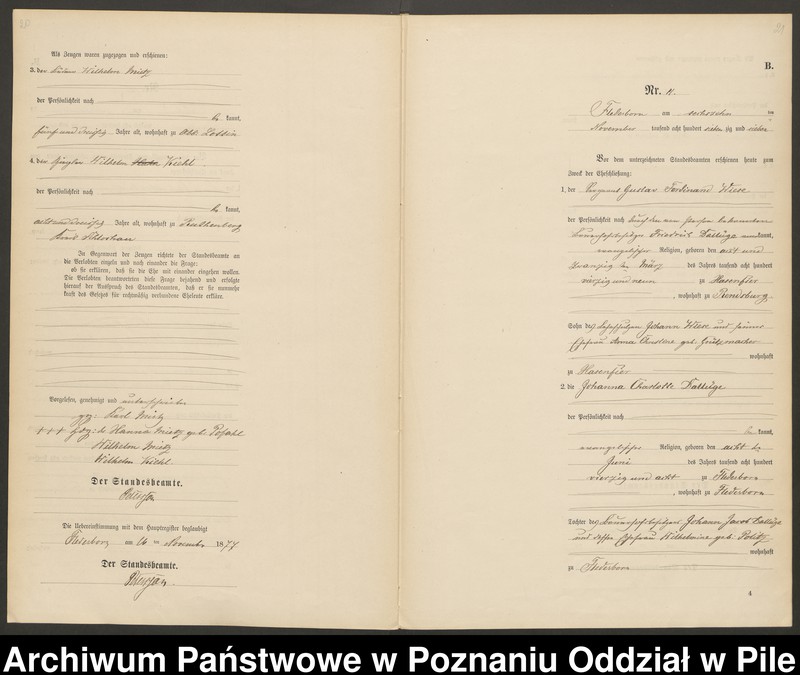 Als Zeugen waren zugezogen und erschienen:
3. der Wilhelm Mietz
der Persönlichkeit nach
be kannt,
fünf und dreißig Jahre alt, wohnhaft zu
4. der Wilhelm Kiehl
der Persönlichkeit nach
be kannt,
acht und dreißig Jahre alt, wohnhaft zu
Kreis Schlochau
In Gegenwart der Zeugen richtete der Standesbeamte an
die Verlobten einzeln und nach einander die Frage:
ob sie erklären, daß sie die Ehe mit einander eingehen wollen.
Die Verlobten beantworteten diese Frage bejahend und erfolgte
hierauf der Ausspruch des Standesbeamten, daß er sie nunmehr
kraft des Gesetzes für rechtmäßig verbundene Eheleute erkläre.
Vorgelesen, genehmigt und unterschrieben
gez: Karl Mietz
+++ Hdz: d. Hanna Mietz geb.
Wilhelm Mietz
Wilhelm Kiehl.
Der Standesbeamte.
Die Uebereinstimmung mit dem Hauptregister beglaubigt
Flederborn am 16 ten November 1877
Der Standesbeamte.
21
B.
Nr. 11.
Flederborn am sechszehn ten
November tausend acht hundert sieben zig und sieben
Vor dem unterzeichneten Standesbeamten erschienen heute zum
Zweck der Eheschließung:
1. der Sergeant Gustav Ferdinand Wiese
der Persönlichkeit nach durch den von Person bekannten
Bauerhofsbesitzer Friedrich Dallüge anerkannt,
evangelischer Religion, geboren den acht und
zwanzig ten März des Jahres tausend acht hundert
vierzig und neun zu Hasenfier
, wohnhaft zu Rendsburg
Sohn des Johann Wiese und seiner
Ehefrau Anna Christine geb.
wohnhaft
zu Hasenfier
2. die Johanna Charlotte Dallüge
der Persönlichkeit nach
be kannt,
evangelischer Religion, geboren den acht ten
Juni des Jahres tausend acht hundert
vierzig und acht zu Flederborn
, wohnhaft zu Flederborn
Tochter des Bauerhofsbesitzers Johann Jacob Dallüge
und dessen Ehefrau Wilhelmine geb.
wohnhaft
zu Flederborn
4
Archiwum Państwowe w Poznaniu Oddział w Pile